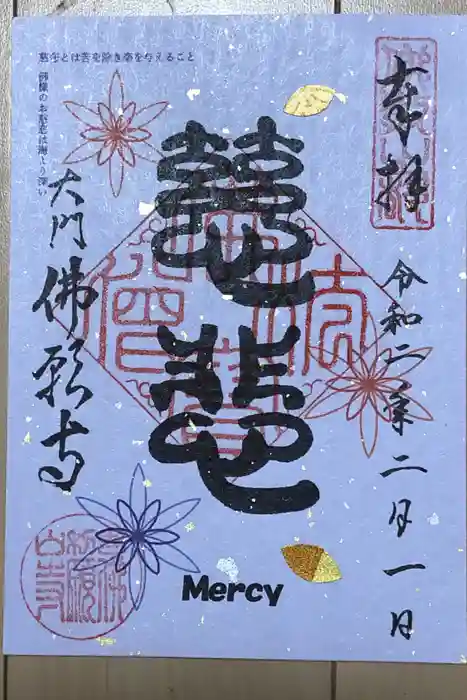 奉拝
令和二年二月一日
慈悲
慈悲とは苦を除き楽を与えること
佛様のお慈悲は海よう深い
大門
佛願寺
Mercy